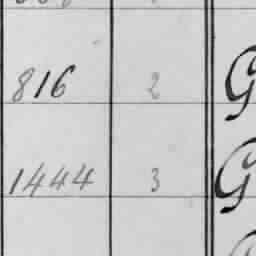 816 2 G
1444 3 G